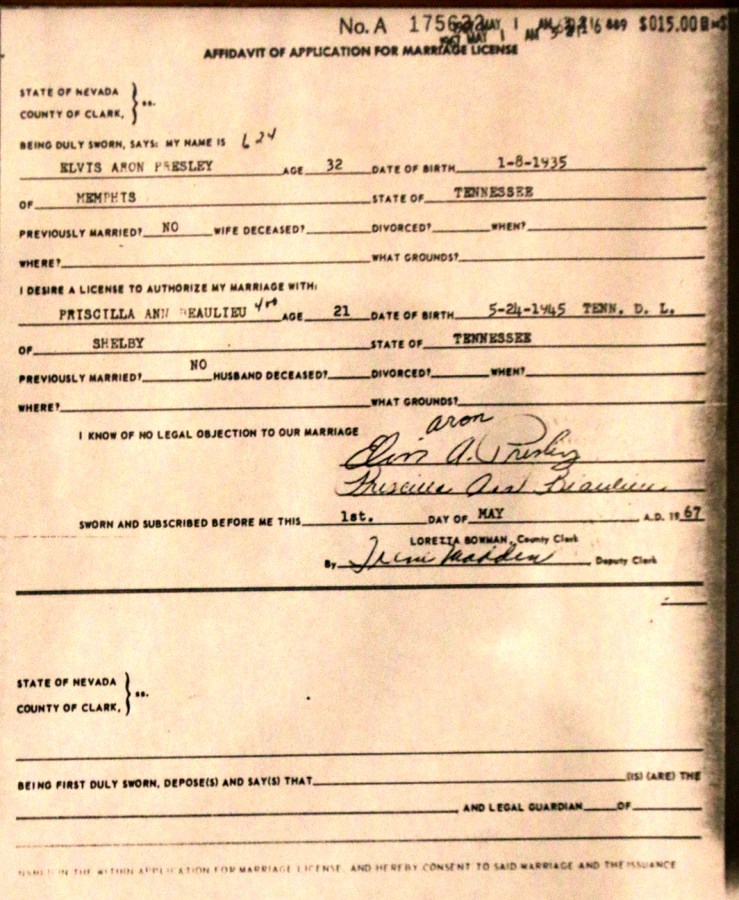 No. A 175632 MAY 1 AM $015.00
1967 MAY 1 AM
AFFIDAVIT OF APPLICATION FOR MARRIAGE LICENSE
STATE OF NEVADA
COUNTY OF CLARK, } ss.
BEING DULY SWORN, SAYS: MY NAME IS 624
ELVIS ARON PRESLEY AGE 32 DATE OF BIRTH 1-8-1935
OF MEMPHIS STATE OF TENNESSEE
PREVIOUSLY MARRIED? NO WIFE DECEASED? DIVORCED? WHEN?
WHERE? WHAT GROUNDS?
I DESIRE A LICENSE TO AUTHORIZE MY MARRIAGE WITH:
PRISCILLA ANN BEAULIEU 400 AGE 21 DATE OF BIRTH 5-24-1945 TENN. D. L.
OF SHELBY STATE OF TENNESSEE
PREVIOUSLY MARRIED? NO HUSBAND DECEASED? DIVORCED? WHEN?
WHERE? WHAT GROUNDS?
I KNOW OF NO LEGAL OBJECTION TO OUR MARRIAGE
aron
Elvis A. Presley
Priscilla Ann Beaulieu
SWORN AND SUBSCRIBED BEFORE ME THIS 1st. DAY OF MAY A.D. 19 67
LORETTA BOWMAN, County Clerk
By Irene Madden Deputy Clerk
STATE OF NEVADA
COUNTY OF CLARK, } ss.
BEING FIRST DULY SWORN, DEPOSE(S) AND SAY(S) THAT (IS) (ARE) THE
AND LEGAL GUARDIAN OF
NAMED IN THE WITHIN APPLICATION FOR MARRIAGE LICENSE, AND HEREBY CONSENT TO SAID MARRIAGE AND THE ISSUANCE